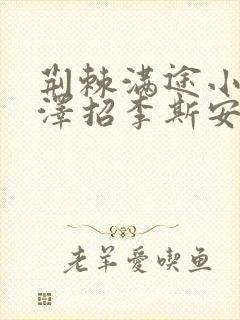 荆棘满途小
泽招李斯安
老羊愛喫鱼